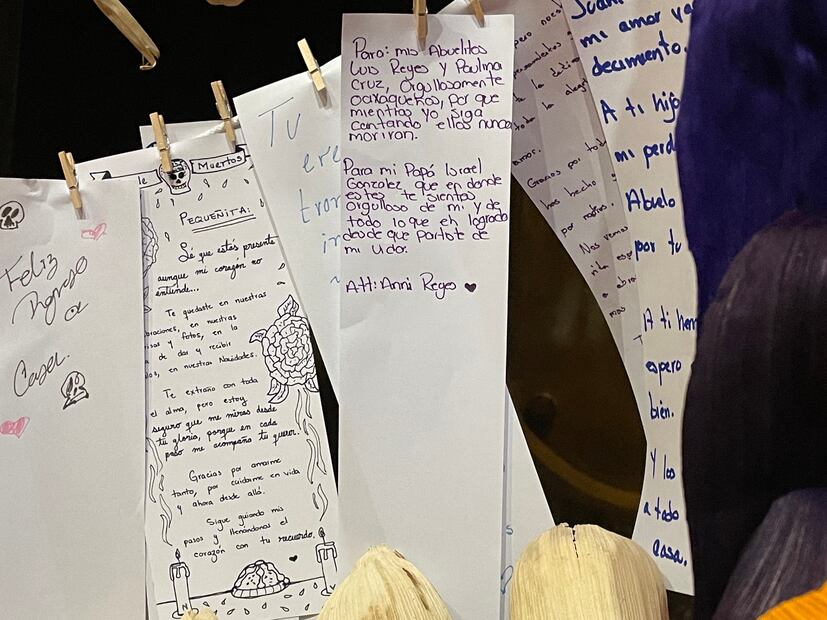 Feliz
Regreso
a
Casa.
de Muertos
PEQUEÑITA:
Sé que estás presente
aunque mi corazón no
entiende...
Te quedaste en nuestras
oraciones, en nuestras
y fotos, en la
de dar y recibir
en nuestras Navidades.
Te extraño con toda
el alma, pero estoy
seguro que me miras desde
tu gloria, porque en cada
paso me acompaña tu querer.
Gracias por amarme
tanto, por cuidarme en vida
y ahora desde allá.
Sigue guiando mis
pasos y llenándonos el
corazón con tu recuerdo.
N
V
Tu
ere
tron
in
Para: mis Abuelitos
Luis Reyes y Paulina
Cruz, Orgullosamente
Oaxaqueños, por que
mientras yo siga
cantando ellos nunca
morirán.
Para mi Papá Israel
Gonzalez, que en donde
estes te sientas
orgulloso de mi y de
todo lo que eh logrado
desde que partiste de
mi vida.
Att: Anni Reyes
pero nues
la alegr
amor.
Gracias por tod
has hecho y
por
Nos vemos
mi amor ya
decimiento.
A ti hijo
mi perd
Abuelo
por tu
A ti herm
espero
bien.
Y los
a todo
casa.